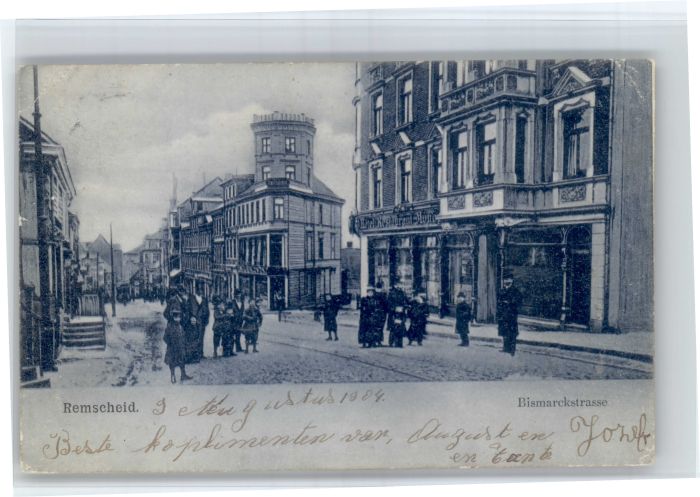 Restaurant
Remscheid. 3 Augustus 1904. Bismarckstrasse.
Beste komplimenten van, August en Jozef
en tante